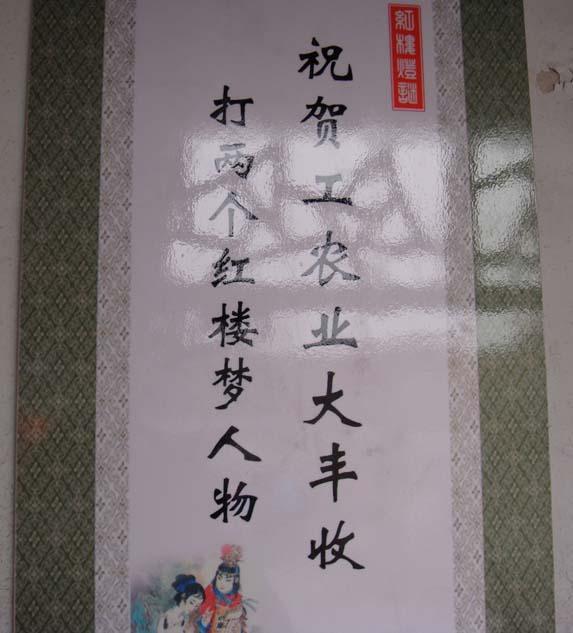 紅樓燈謎
祝贺工农业大丰收
打两个红楼梦人物